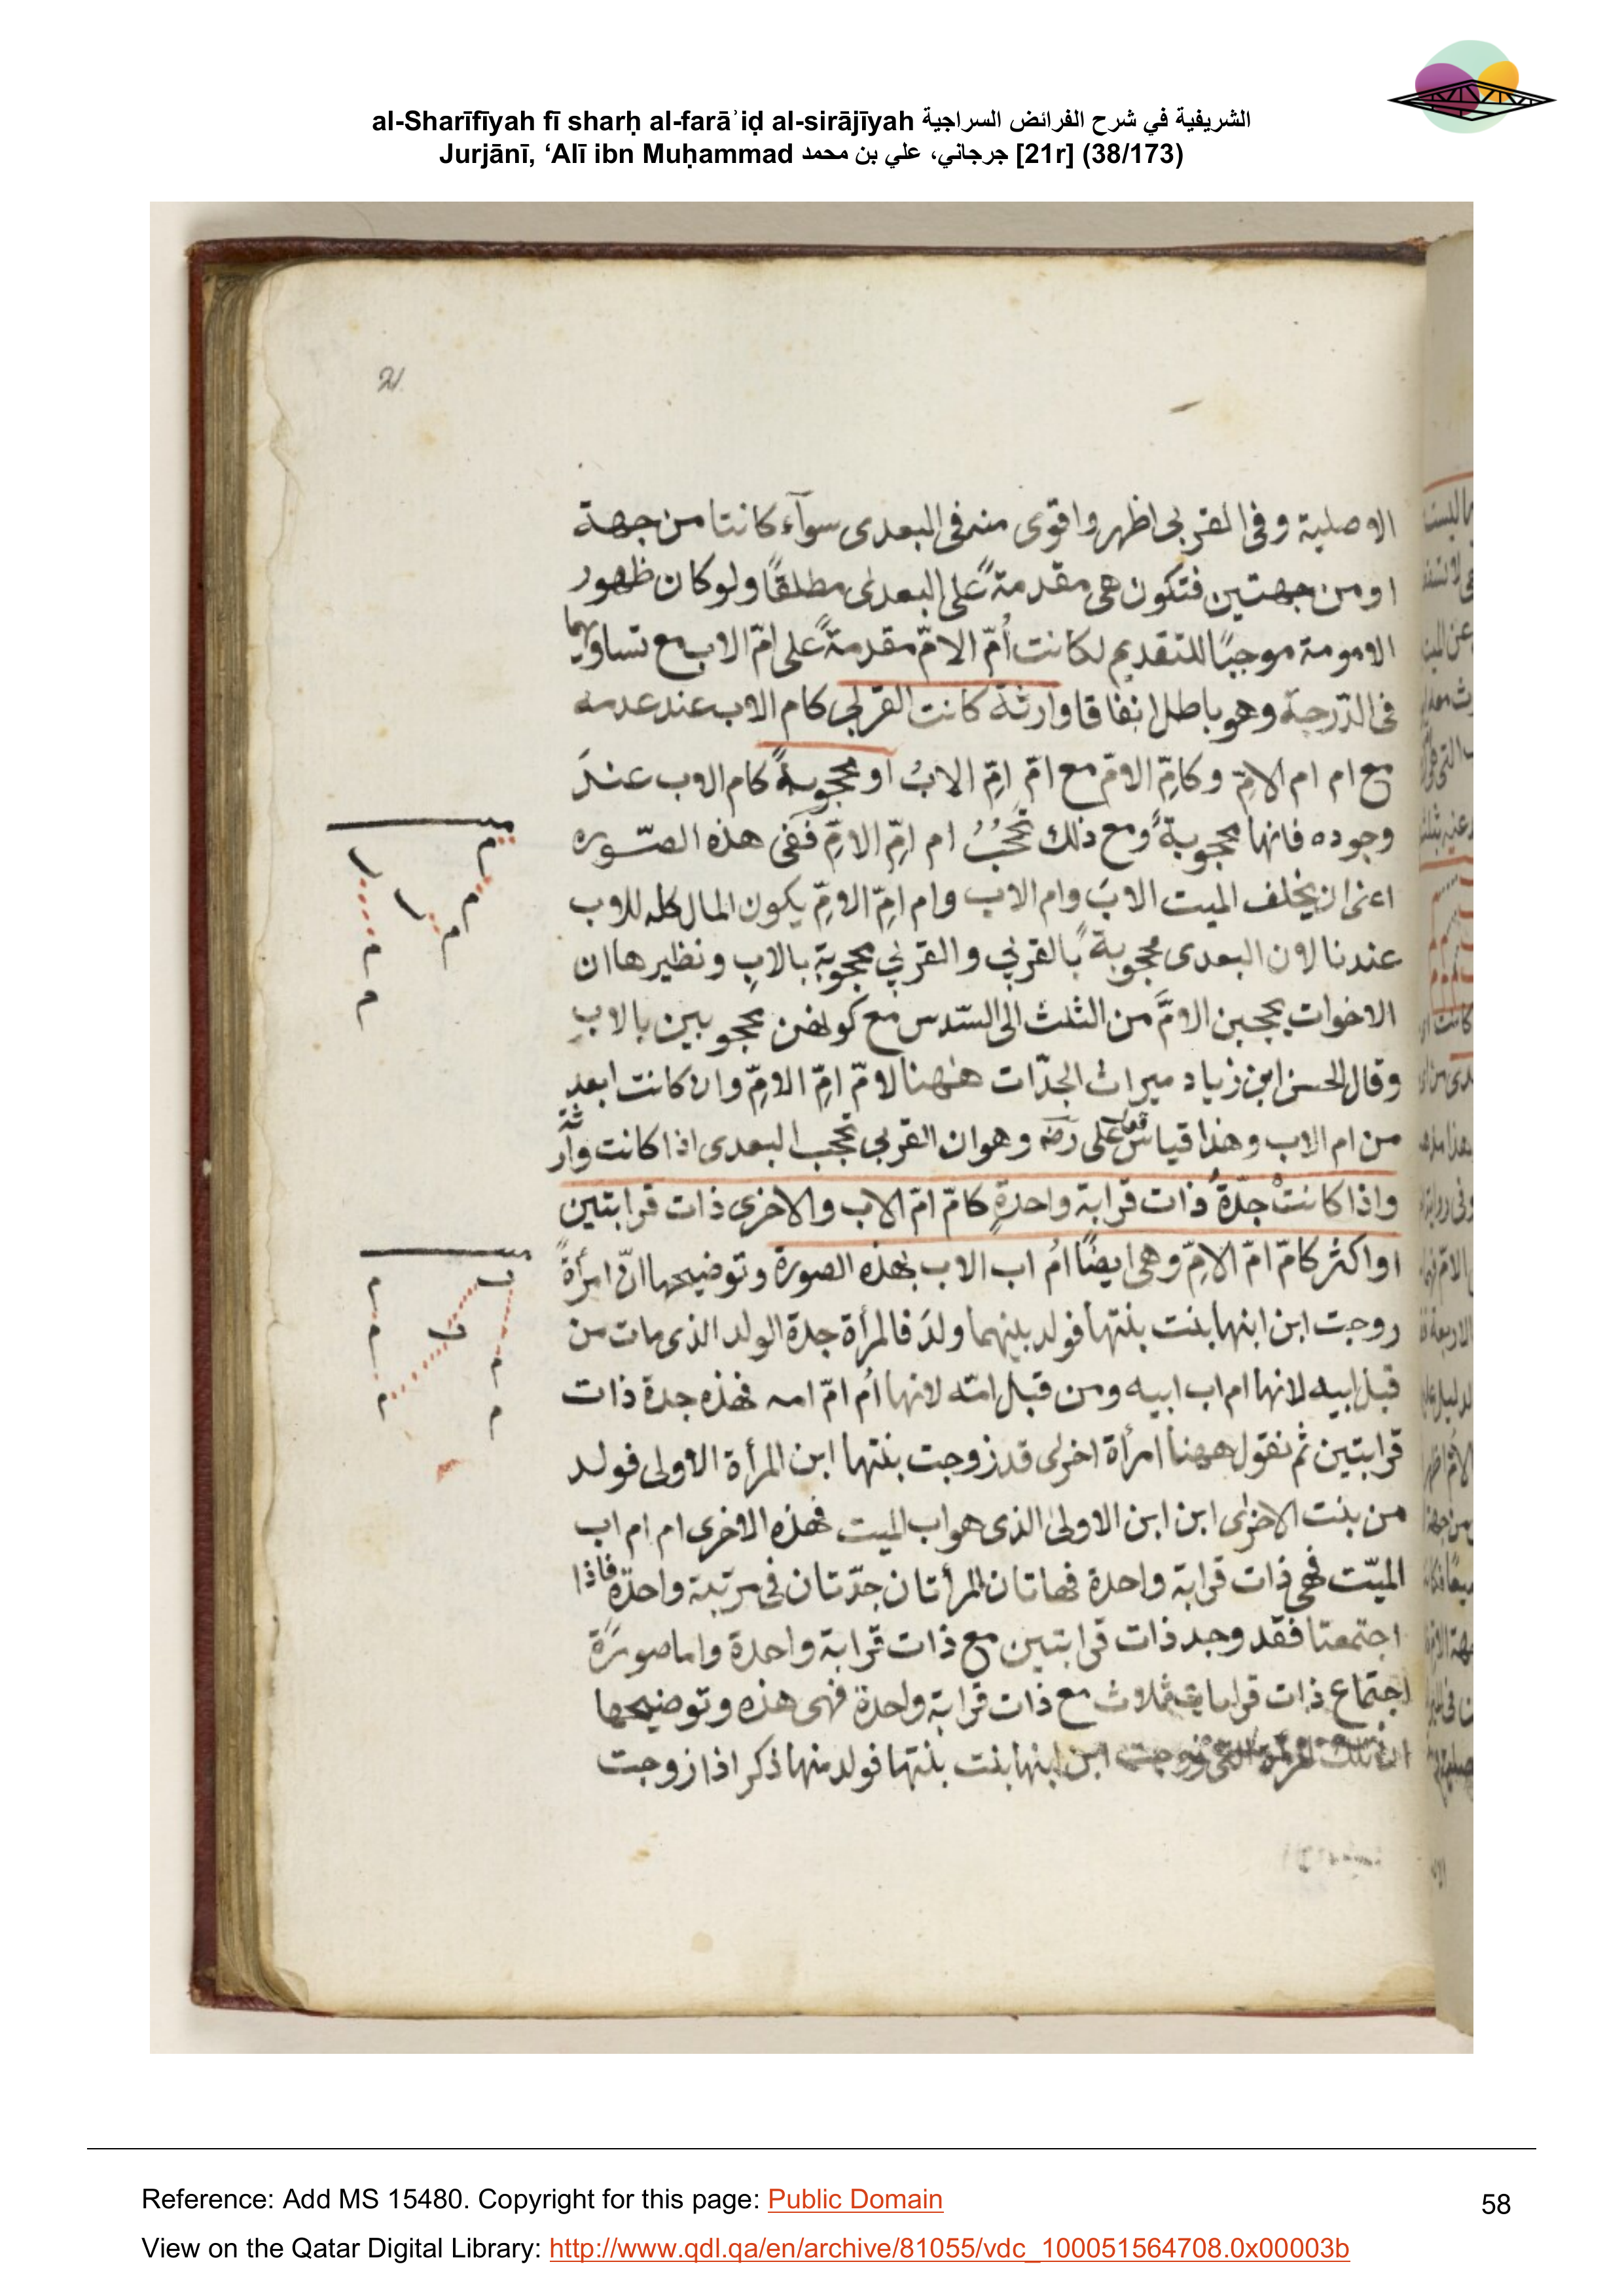 al-Sharīfīyah fī sharḥ al-farāʾiḍ al-sirājīyah الشريفية في شرح الفرائض السراجية
Jurjānī, ‘Alī ibn Muḥammad جرجاني، علي بن محمد [21r] (38/173)
21
الاصلية وفى القربى اظهر واقوى منه فى البعدى سوآء كانتا من جهة
او من جهتين فتكون هى مقدمةً على البعدى مطلقًا ولو كان ظهور
الامومة موجبًا للتقديم لكانت أمّ الامّ مقدمةً على امّ الاب مع تساويهما
فى الدّرجة وهو باطل اتفاقا وارثة كانت القربى كام الاب عند عدمه
مع ام ام الامِّ وكامِّ الامّ مع امّ امِّ الابُ او محجوبةً كام الاب عندَ
وجوده فانها محجوبةً ومع ذلك تحجُبُ ام امِّ الامِّ ففى هذه الصّوره
اعنى ان يخلف الميت الابَ وام الاب وام امِّ الامِّ يكون المال كله للاب
عندنا لان البعدى محجوبة بالقربي والقربي محجوبة بالابِ ونظيرها ان
الاخوات يحجبن الامَّ من الثلث الى السّدس مع كونهن محجوبين بالابِ
وقال الحسن ابن زياد ميراث الجدّات هٰهنا لامّ امِّ الامِّ وان كانت ابعد
من ام الاب وهذا قياس قول على رضه وهو ان القربي تحجب البعدى اذا كانت وارثة
واذا كانتْ جدّةُ ذات قرابة واحدةٍ كامّ امّ الاب والاخرى ذات قرابتين
او اكثر كامّ امّ الامِّ وهى ايضًا امُ اب الاب بهذه الصورة وتوضيحها انّ امرأةً
زوجت ابن ابنها بنت بنتها فولد بينهما ولدَ فالمرأة جدة الولد الذى مات من
قبل ابيه لانها ام اب ابيه ومن قبل امّه لانها اُم امّ امه فهذه جدة ذات
قرابتين ثم نقول ههنا امرأة اخرى قد زوجت بنتها ابن المرأة الاولى فولد
من بنت الاخرى ابن ابن الاولى الذى هو اب الميت فهذه الاخرى ام ام اب
الميّت فهى ذات قرابة واحدة فهاتان المرأتان جدّتان فى مرتبة واحدة فاذا
اجتمعتا فقد وجد ذات قرابتين مع ذات قرابة واحدة واما صورة
اجتماع ذات قرابات ثلاث مع ذات قرابة واحدة فهى هذه وتوضيحها
ان تلك المرأة التى زوجت ابن ابنها بنت بنتها فولد منها ذكر اذا زوجت
Reference: Add MS 15480. Copyright for this page: Public Domain
58
View on the Qatar Digital Library: http://www.qdl.qa/en/archive/81055/vdc_100051564708.0x00003b